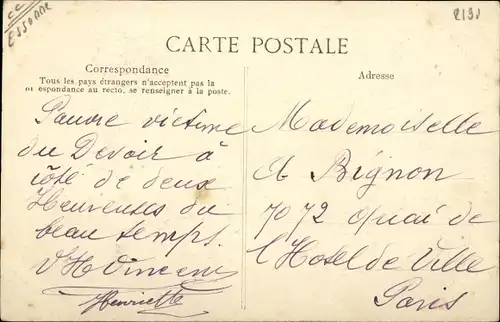 Essonne
2191
CARTE POSTALE
Correspondance
Tous les pays étrangers n'acceptent pas la
correspondance au recto, se renseigner à la poste.
Pauvre victime
du Devoir à
côté de deux
Heureuses du
beau temps.
Henriette
Adresse
Mademoiselle
Bignon
70 72 Quai de
l'Hotel de Ville
Paris